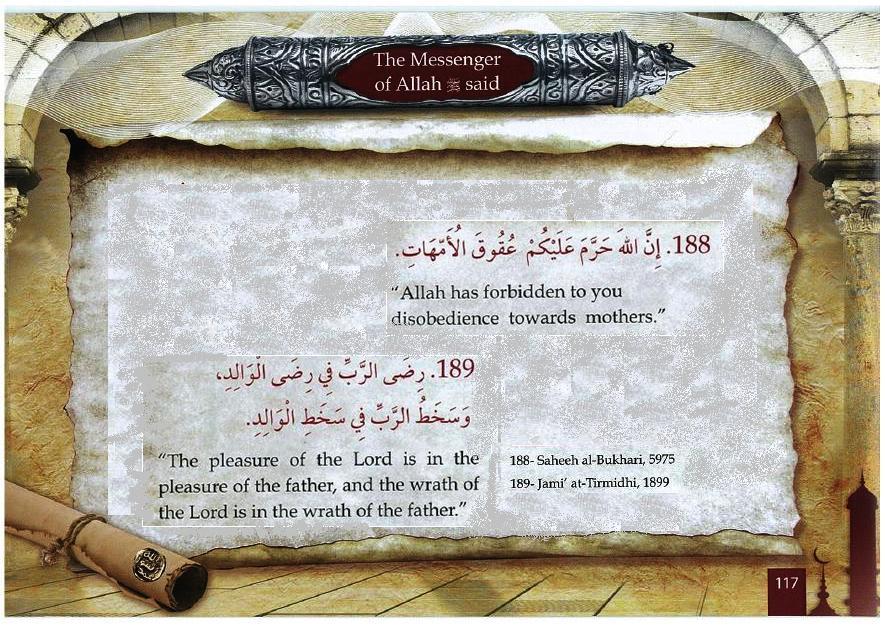 The Messenger
of Allah ﷺ said
188. إِنَّ اللهَ حَرَّمَ عَلَيْكُمْ عُقُوقَ الْأُمَّهَاتِ.
“Allah has forbidden to you
disobedience towards mothers.”
189. رِضَى الرَّبِّ فِي رِضَى الْوَالِدِ،
وَسَخَطُ الرَّبِّ فِي سَخَطِ الْوَالِدِ.
“The pleasure of the Lord is in the
pleasure of the father, and the wrath of
the Lord is in the wrath of the father.”
188- Saheeh al-Bukhari, 5975
189- Jami’ at-Tirmidhi, 1899
الله
رسول
محمد
117